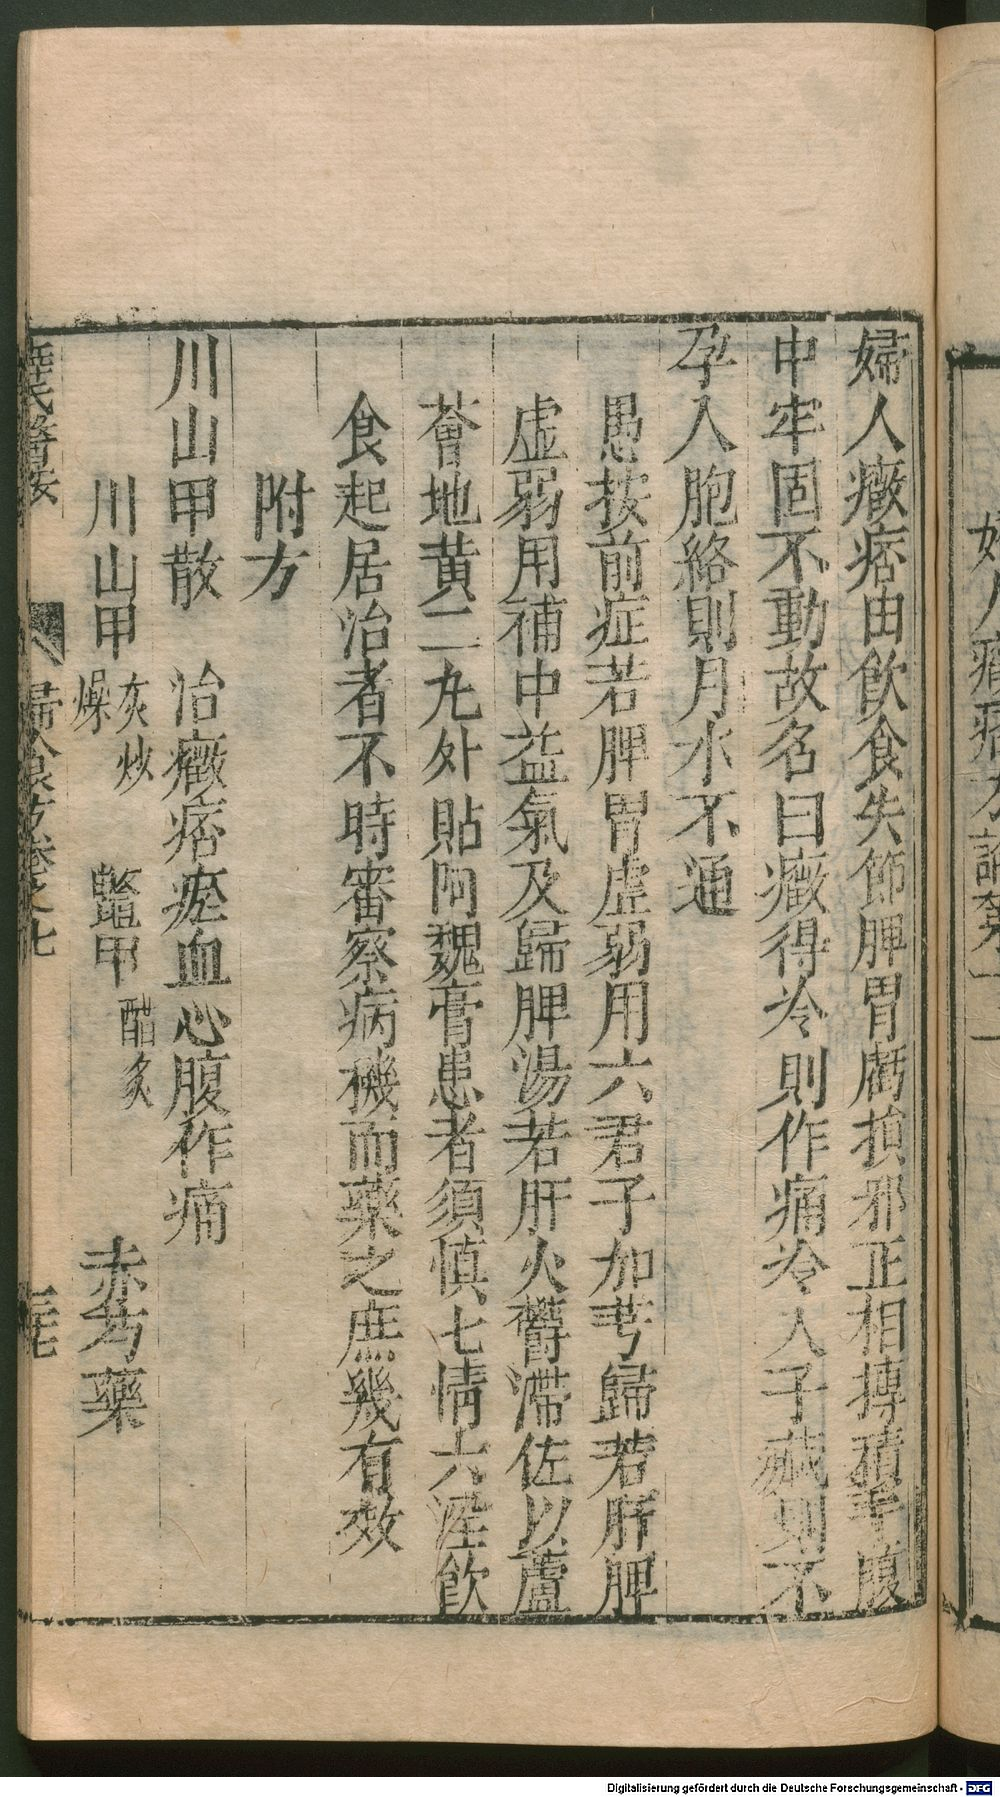 婦人癥痞由飲食失節脾胃虧損邪正相搏積于腹
中牢固不動故名曰癥得冷則作痛冷入子臟則不
孕入胞絡則月水不通
愚按前症若脾胃虛弱用六君子加芎歸若肝脾
虛弱用補中益氣及歸脾湯若肝火鬱滯佐以蘆
薈地黃二丸外貼阿魏膏患者須慎七情六淫飲
食起居治者不時審察病機而藥之庶幾有效
附方
川山甲散 治癥痞瘀血心腹作痛
川山甲灰炒燥 鱉甲醋炙 赤芍藥
薛氏醫按 婦人良方卷之七
Digitalisierung gefördert durch die Deutsche Forschungsgemeinschaft - DFG